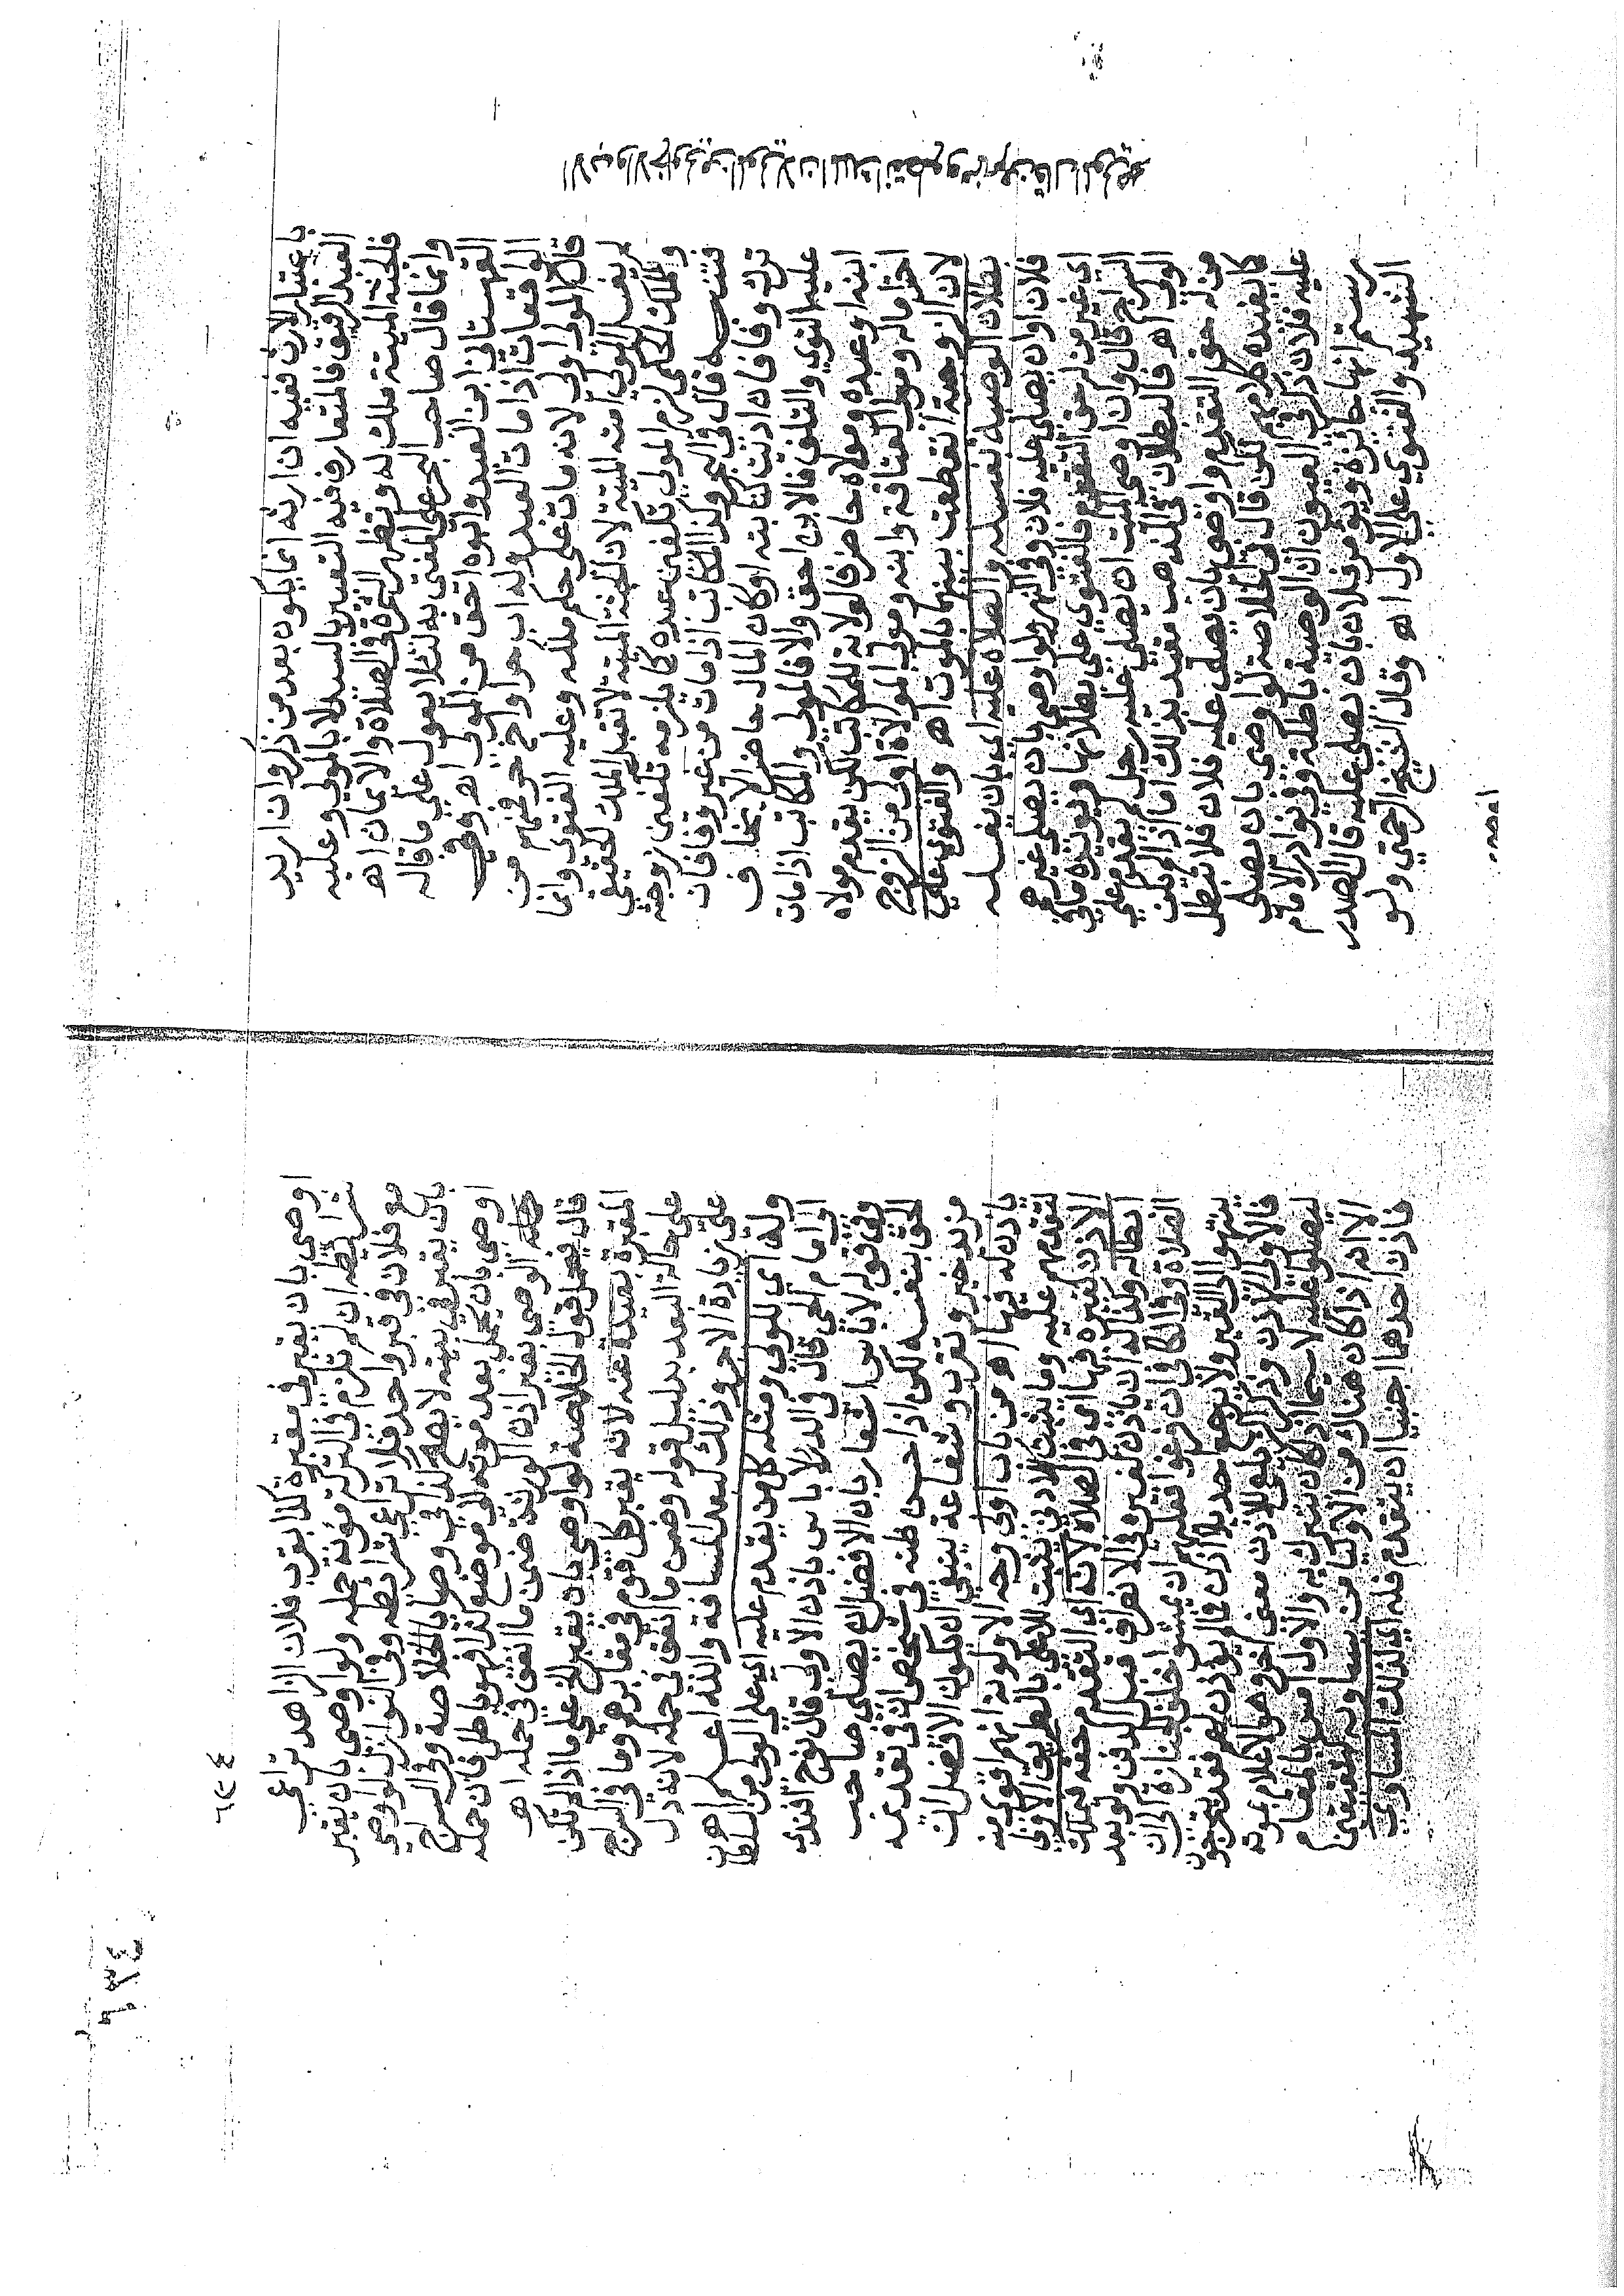 باعتبار الارث ففيه ان ارثه انما يكون بعد من ذكر وان اريد
العبد الرقيق فالمتعارف فيه التعبير بالسيد لا بالمولى وعليه
فلجثة الميتة ملك له وتظهر الثمرة في الصلاة والايمان اه
وانما قال صاحب البحر على المفتى به لئلا يعول على ما قاله
القهستاني ابن العبد وابوه احق من المولى اه وفي
الواقعات اذا مات العبد وله اب حر او اخ حر فمنهم من
قال المولى اولى لانه مات على حكم ملكه وعليه الفتوى وانما
لم يغسل المولى امته الميتة لان الجثة الميتة لا تقبل الملك الحقيقي
وللملك الحكمي لزم المولى تكفين عبده كما يلزمه تكفين زوجته
فتنبه قال في البحر وكذا المكاتب اذا مات من غير وفا فان
ترك وفا فان اديت كتابته او كان المال حاضرا لا يخاف
عليه التوي والتلف فالابن احق والا فالمولى والمكاتب اذا مات
ابنه او عبده ومولاه حاضر فالولاية للمكاتب لكن يقدم مولاه
احتراما له ومولى العتاقة وابنه ومولى الموالاة اولى من الزوج
لان الزوجية انقطعت بينهما بالموت اه والفتوى على
بطلان الوصية بغسله والصلاة عليه اي بان يغسله
فلان او ان يصلي عليه فلان وفي النهر ولو اوصى بان يصلي غيرهم
اي غير من له حق التقدم فالفتوى على بطلانها ويؤيده ما في
السراج قال وان اوصى الميت ان يصلي عليه رجل لم يقدم على
الولي اه فالبطلان في المذهب مقيد بذلك اما اذا لم يكن
من له حق التقدم واوصى بان يصلى عليه فلان فلا تبطل
كما يفيده كلامهم لكن قال في الخلاصة لو اوصى بان يصلي
عليه فلان ذكر في العيون ان الوصية باطلة وفي نوادر الامام
رستم انها جائزة ويؤمر فلان بان يصلي عليه قال الصدر
الشهيد والفتوى على الاول اه وقال الشيخ الرحمتي ولو
اوصى
اوصى بان يقبر في مقبرة كذا بقرب فلان الزاهد تراعي
شرائطه ان لم تلزم في التركة مؤنة حمله ولو اوصى بان يقبر
مع فلان في قبر واحد فلا تراعى شرائطه وفي النوازل لو اوصى
بان يقبر في بيته لا يصح كذا في وصايا الخلاصة وفي السراج
اوصى بان يحمل بعد موته الى موضع كذا فهو باطل فان حمله
الوصي بغير اذن الورثة ضمن ما انفق في حمله اه
قال فيحمل قول الخلاصة لو اوصى بان يقبر الخ على ما اذا لم تكن
المقبرة بعيدة عنه لانه يقبر كل قوم في مقابرهم وما في السراج
على حالة البعد بدليل قوله وضمن ما انفق في حمله لانه دل
على زيادة الاجر وذلك لبعد المسافة والله اعلم اه
وله اي للولي ومثله كل من يقدم عليه اي على الولي من السلطان
او امام الحي قال في الدرر لا باس باذن الاولى قال نوح افندي
وفي قوله لا باس اشعار بان الافضل ان يصلي صاحب
الحق بنفسه لكن اذا حسن ظنه في شخص ان في تقديمه
مزيد خير وتقرب وشفاعة ينبغي ان يكون الافضل ان
ياذن له فيها اه من باب اولى وجه الاولوية انهم اقوى منه
لتقدمهم عليه وما يثبت للادنى يثبت للاعلى بالطريق الاولى
الاذن لغيره فيها اي في الصلاة لانه اي التقدم حقه فيملك
ابطاله وكذا له ان ياذن لغيره في الانصراف قبل الدفن ولو بعد
الصلاة وفي الكافي ان فرغوا فعليهم ان يمشوا خلف الجنازة الى ان
ينتهوا الى القبر ولا يرجع احد بلا اذن فان لم يؤذن لهم فقد يتحرجون
فالاولى الاذن وذكر الزيلعي للاذن معنى اخر وهو الاعلام بموته
ليصلوا عليه لا سيما اذا كان يتبرك به والاول امس بالمقام
الا انه اذا كان هناك من الاوليا من يساويه في
فاذن احدهما اجنبيا ان يتقدم فله اي لذلك المساوي